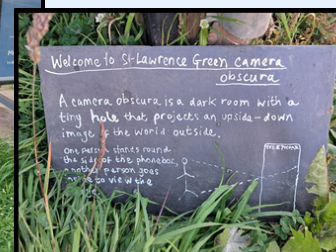 Welcome to St-Lawrence Green camera
obscura
A camera obscura is a dark room with a
tiny hole that projects an upside-down
image of the world outside.
One person stands round
the side of the phonebox,
another person goes
to view the